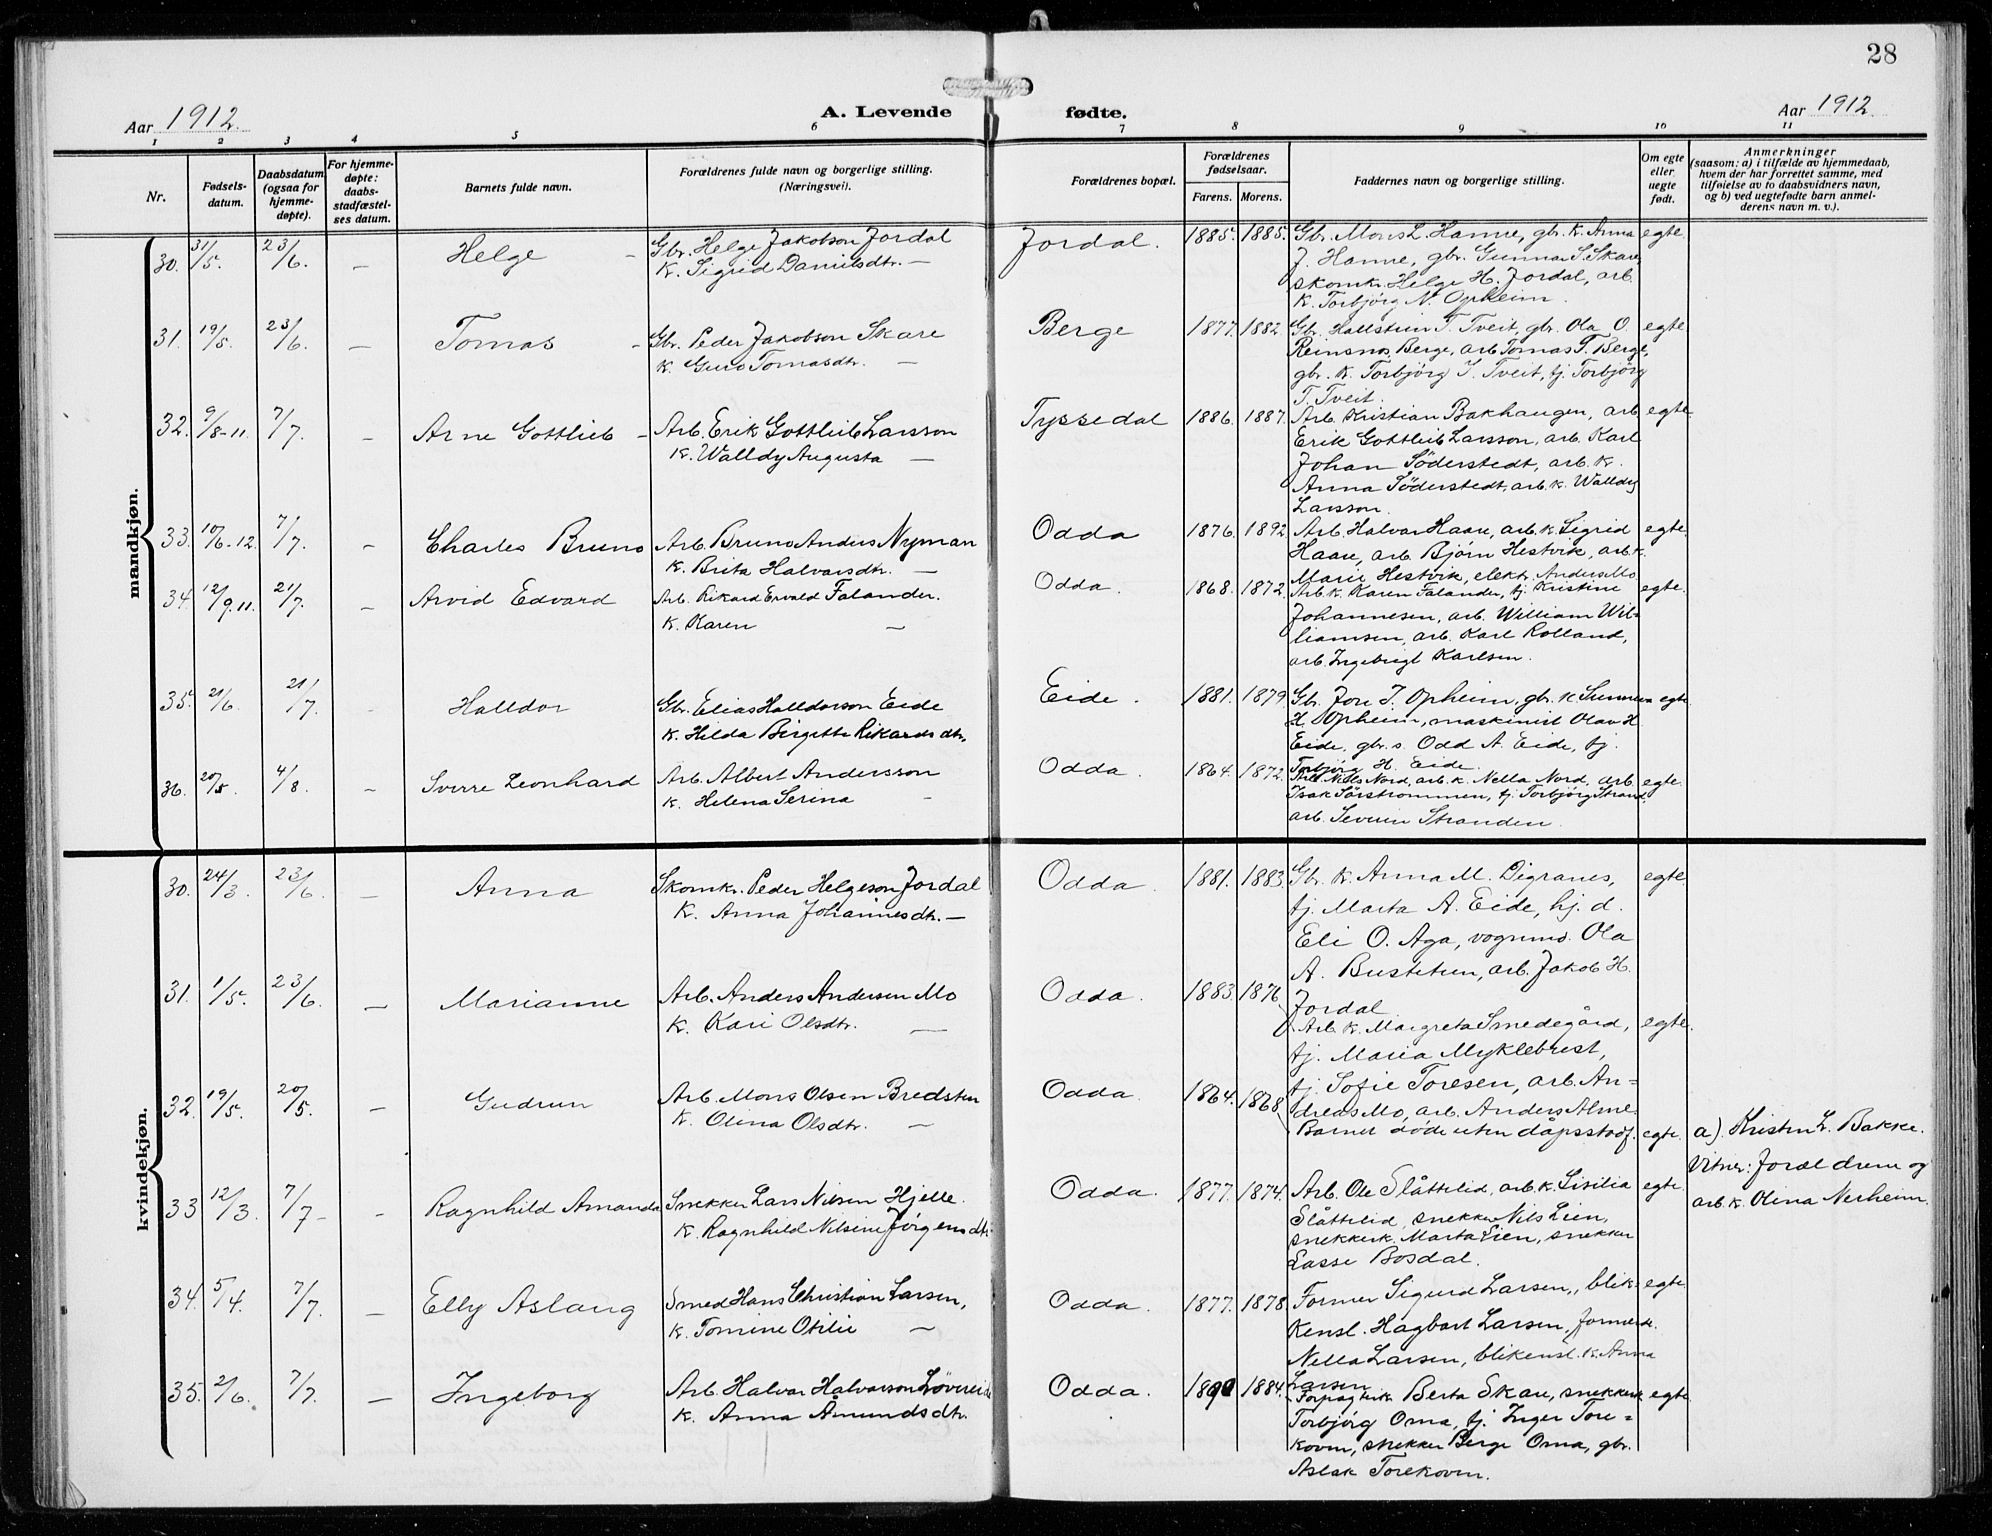 28
Aar 1912.
A. Levende fødte.
Aar 1912
1 2 3 4 5 6 7 8 9 10 11
Nr.
Fødsels-
datum.
Daabsdatum
(ogsaa for
hjemme-
døpte).
For hjemme-
døpte:
daabs-
stadfæstel-
ses datum.
Barnets fulde navn.
Forældrenes fulde navn og borgerlige stilling.
(Næringsvei).
Forældrenes bopæl.
Forældrenes
fødselsaar.
Farens. Morens.
Faddernes navn og borgerlige stilling.
Om egte
eller
uegte
født.
Anmerkninger
(saasom: a) i tilfælde av hjemmedaab,
hvem der har forrettet samme, med
tilføielse av to daabsvidners navn,
og b) ved uegtefødte barn anmel-
derens navn m. v.).
mandkjøn.
30. 31/5. 23/6. – Helge – Gbr. Helge Jakobson Jordal
K. Sigrid Danielsdtr. –
Jordal. 1885. 1885. Gbr. Mons L. Hamre, gbr. K. Anna egte.
J. Hamre, gbr. Gunnar S. Skare,
skomkr. Helge H. Jordal, arb.
K. Torbjörg N. Opheim.
31. 19/5. 23/6. – Tomas – Gbr. Peder Jakobson Skare
K. Guro Tomasdtr. –
Berge 1877. 1882. Gbr. Hallstein T. Tveit, gbr. Ola O. egte.
Reinsnos, Berge, arb. Tomas T. Berge,
gbr. K. Torbjörg T. Tveit, tj. Torbjörg
T. Tveit.
32. 9/8-11. 7/7. – Arne Gottlieb – Arb. Erik Gottlieb Larsson
K. Walldy Augusta –
Tyssedal 1886. 1887. Arb. Kristian Bakhaugen, arb. egte.
Erik Gottlieb Larsson, arb. Karl
Johan Söderstedt, arb. K.
Anna Söderstedt, arb. K. Walldy
Larsson.
33. 10/6-12. 7/7. – Charles Bruno Arb. Bruno Anders Nyman
K. Brita Halvarsdtr. –
Odda 1876. 1892. Arb. Halvar Haare, arb. K. Sigrid egte.
Haare, arb. Bjørn Hestvik, arb. K.
Marie Hestvik, elektr. Anders Mo
34. 12/9.11. 21/7. – Arvid Edvard Arb. Rikard Ervald Falander.
K. Karen –
Odda. 1868. 1872. Arb. K. Karen Falander, tj. Kristine egte.
Johannesen, arb. William Wil-
liamsen, arb. Karl Rolland,
arb. Ingebrigt Karlsen.
35. 21/6. 21/7. – Halldor Gbr. Elias Halldorson Eide
K. Hilda Birgitte Rikardsdtr.
Eide. 1881. 1879. Gbr. Jon J. Opheim, gbr. K. Sunneva egte.
H. Opheim, maskinist Olav H.
Eide, gbr. s. Odd A. Eide, tj.
Torbjörg H. Eide.
36. 20/5. 4/8. – Sverre Leonhard Arb. Albert Andersson
K. Helena Serina –
Odda. 1864. 1872. Arb. Nils Nord, arb. K. Nella Nord, arb. egte.
Isak Sörstrommen, tj. Torbjörg Strand,
arb. Severin Stranden.
kvindekjøn.
30. 24/3. 23/6. – Anna Skomkr. Peder Helgeson Jordal
K. Anna Johannesdtr. –
Odda. 1881. 1883. Gbr. K. Anna M. Digranes, egte.
tj. Marta A. Eide, hj. d.
Eli O. Aga, vognmd. Ola
A. Busteten, arb. Jakob H.
Jordal.
31. 1/5. 23/6. – Marianne Arb. Anders Andersen Mo
K. Kari Olsdtr. –
Odda. 1883. 1876. Arb. K. Margreta Smedegård, egte.
tj. Maria Myklebust,
tj. Sofie Toresen, arb. An-
dreas Mo, arb. Anders Alme.
32. 19/5. 20/5. – Gudrun Arb. Mons Olsen Bredsten
K. Olina Olsdtr. –
Odda. 1864. 1868. Barnet døde uten dåpsstadf. egte.
a). Kristen L. Bakke.
Vitner: Foræl drene og
arb. K. Olina Nerheim.
33 12/3. 7/7. – Ragnhild Amanda Snekker Lars Nilsen Hjelle.
K. Ragnhild Nilsine Jörgensdtr.
Odda. 1877. 1874. Arb. Ole Slåttelid, arb. K. Sisilia egte.
Slåttelid, snekker Nils Lien,
snekkerk. Marta Lien, snekker
Lasse Bosdal.
34. 5/4. 7/7. – Elly Aslaug Smed Hans Christian Larsen,
K. Tomine Otilie –
Odda. 1877. 1878. Former Sigurd Larsen, blik- egte.
kensl. Hagbart Larsen, formerk.
Nella Larsen, blikensl. K. Anna
Larsen
35. 2/6. 7/7. – Ingeborg Arb. Halvar Halvarson Løvereide
K. Anna Åmundsdtr.
Odda. 1890 1884. Forpagterk. Berta Skare, snekkerk. egte.
Torbjörg Oma, tj. Inger Tore-
kovn, snekker Berge Oma, gbr.
Aslak Torekovn.